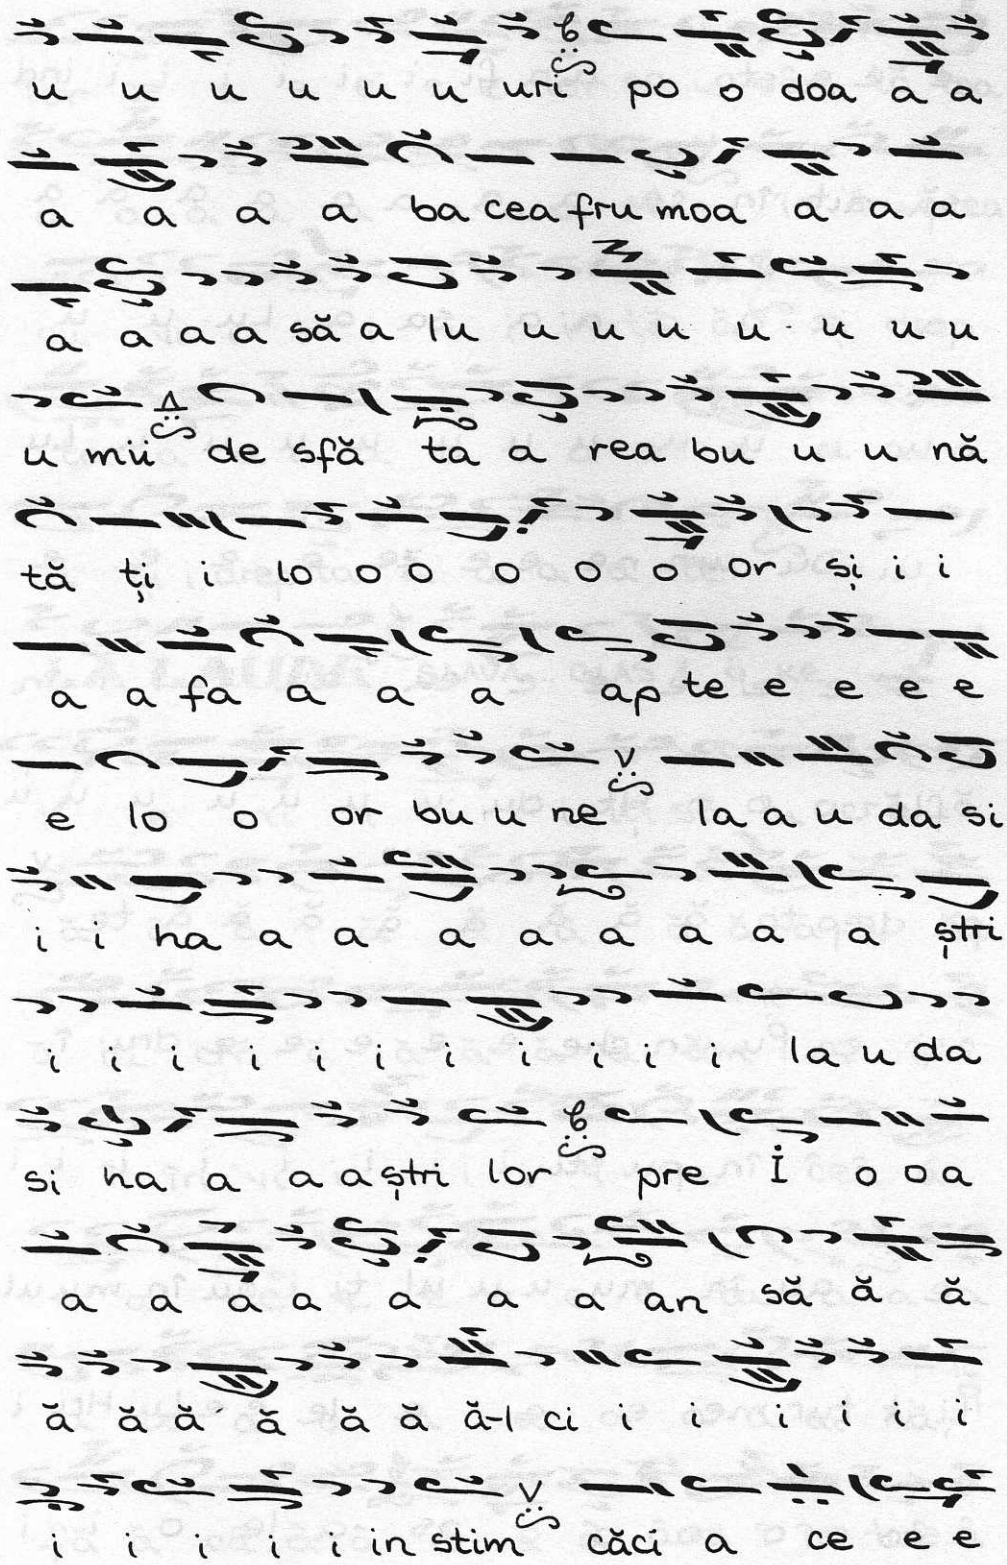 u u u u u u uri po o doa a a
a a a a ba cea fru moa a a a
a a a a să a lu u u u u u u u
u mii de sfă ta a rea bu u u nă
tă ți i lo o o o o o or și i i
a a fa a a a ap te e e e e
e lo o or bu u ne la a u da si
i i ha a a a a a a a a ștri
i i i i i i i i i i i la u da
si ha a a a ștri lor pre İ o o a
a a a a a a a an să ă ă
ă ă ă ă ă ă ă-l ci i i i i i i
i i i i i in stim căci a ce e e